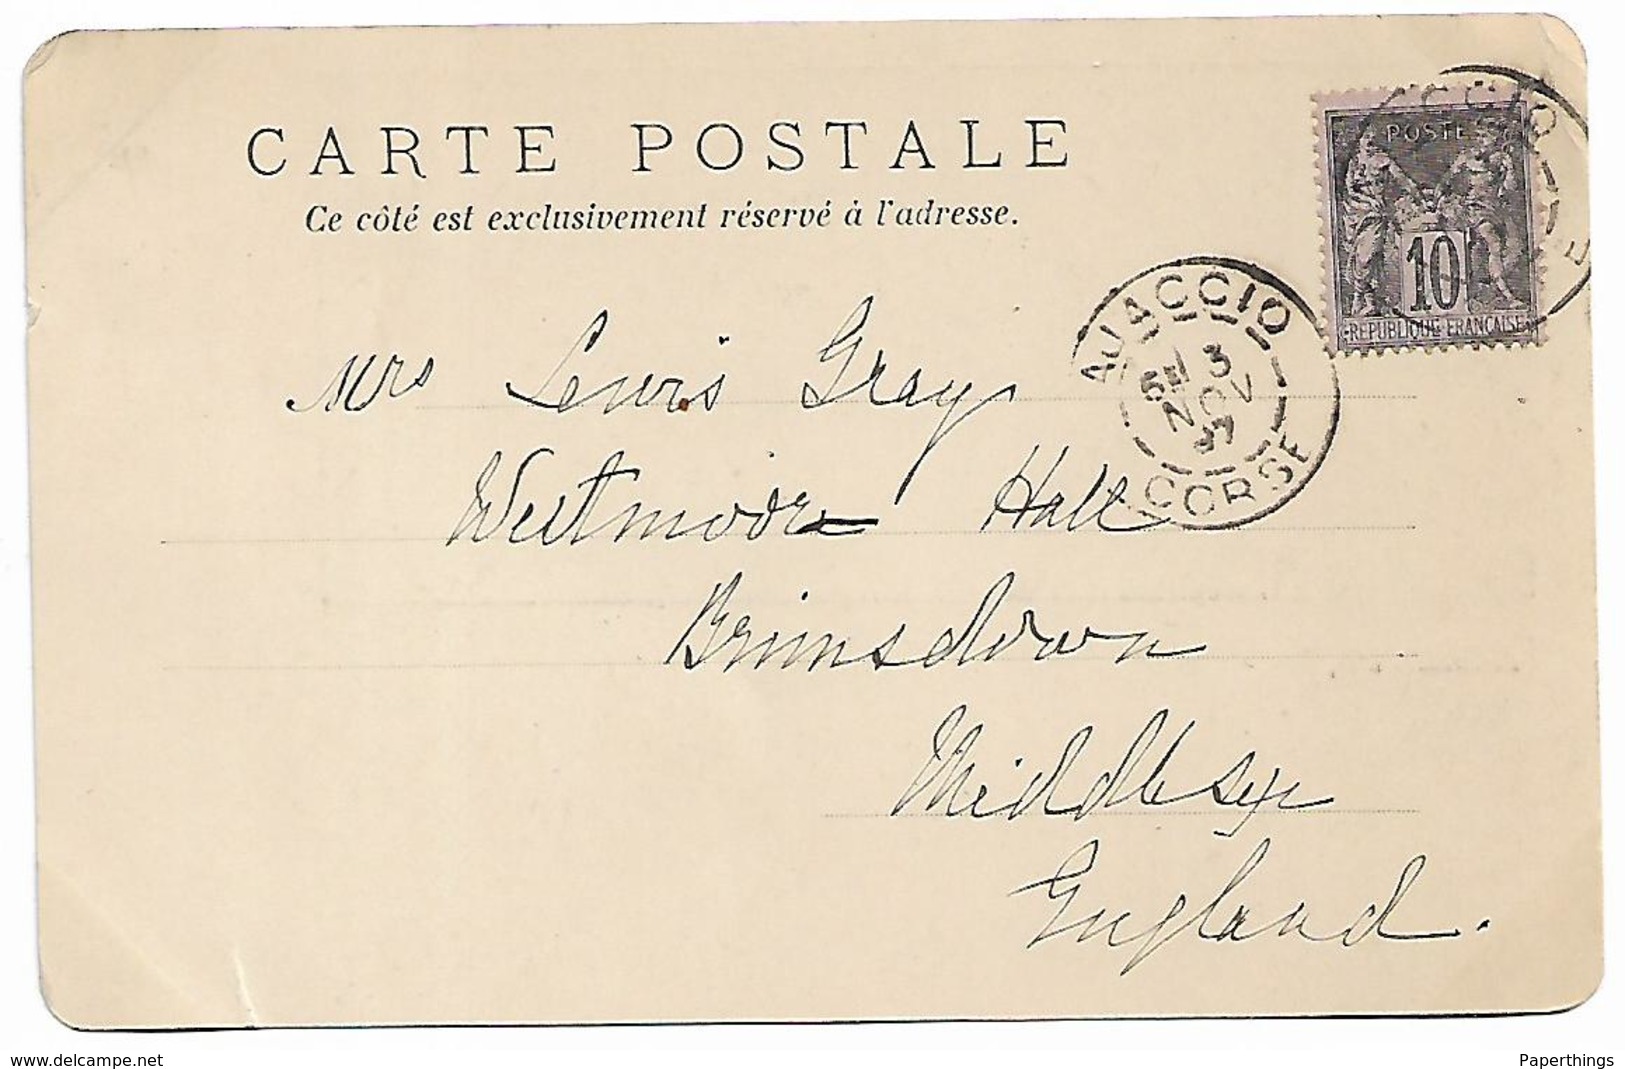 CARTE POSTALE
Ce côté est exclusivement réservé à l'adresse.
POSTE
10
REPUBLIQUE FRANCAISE
AJACCIO
3
NOV
97
CORSE
Mrs Lewis Gray
Westmoor Hall
Brimsdown
Middlesex
England.
delcampe.net
Paperthings